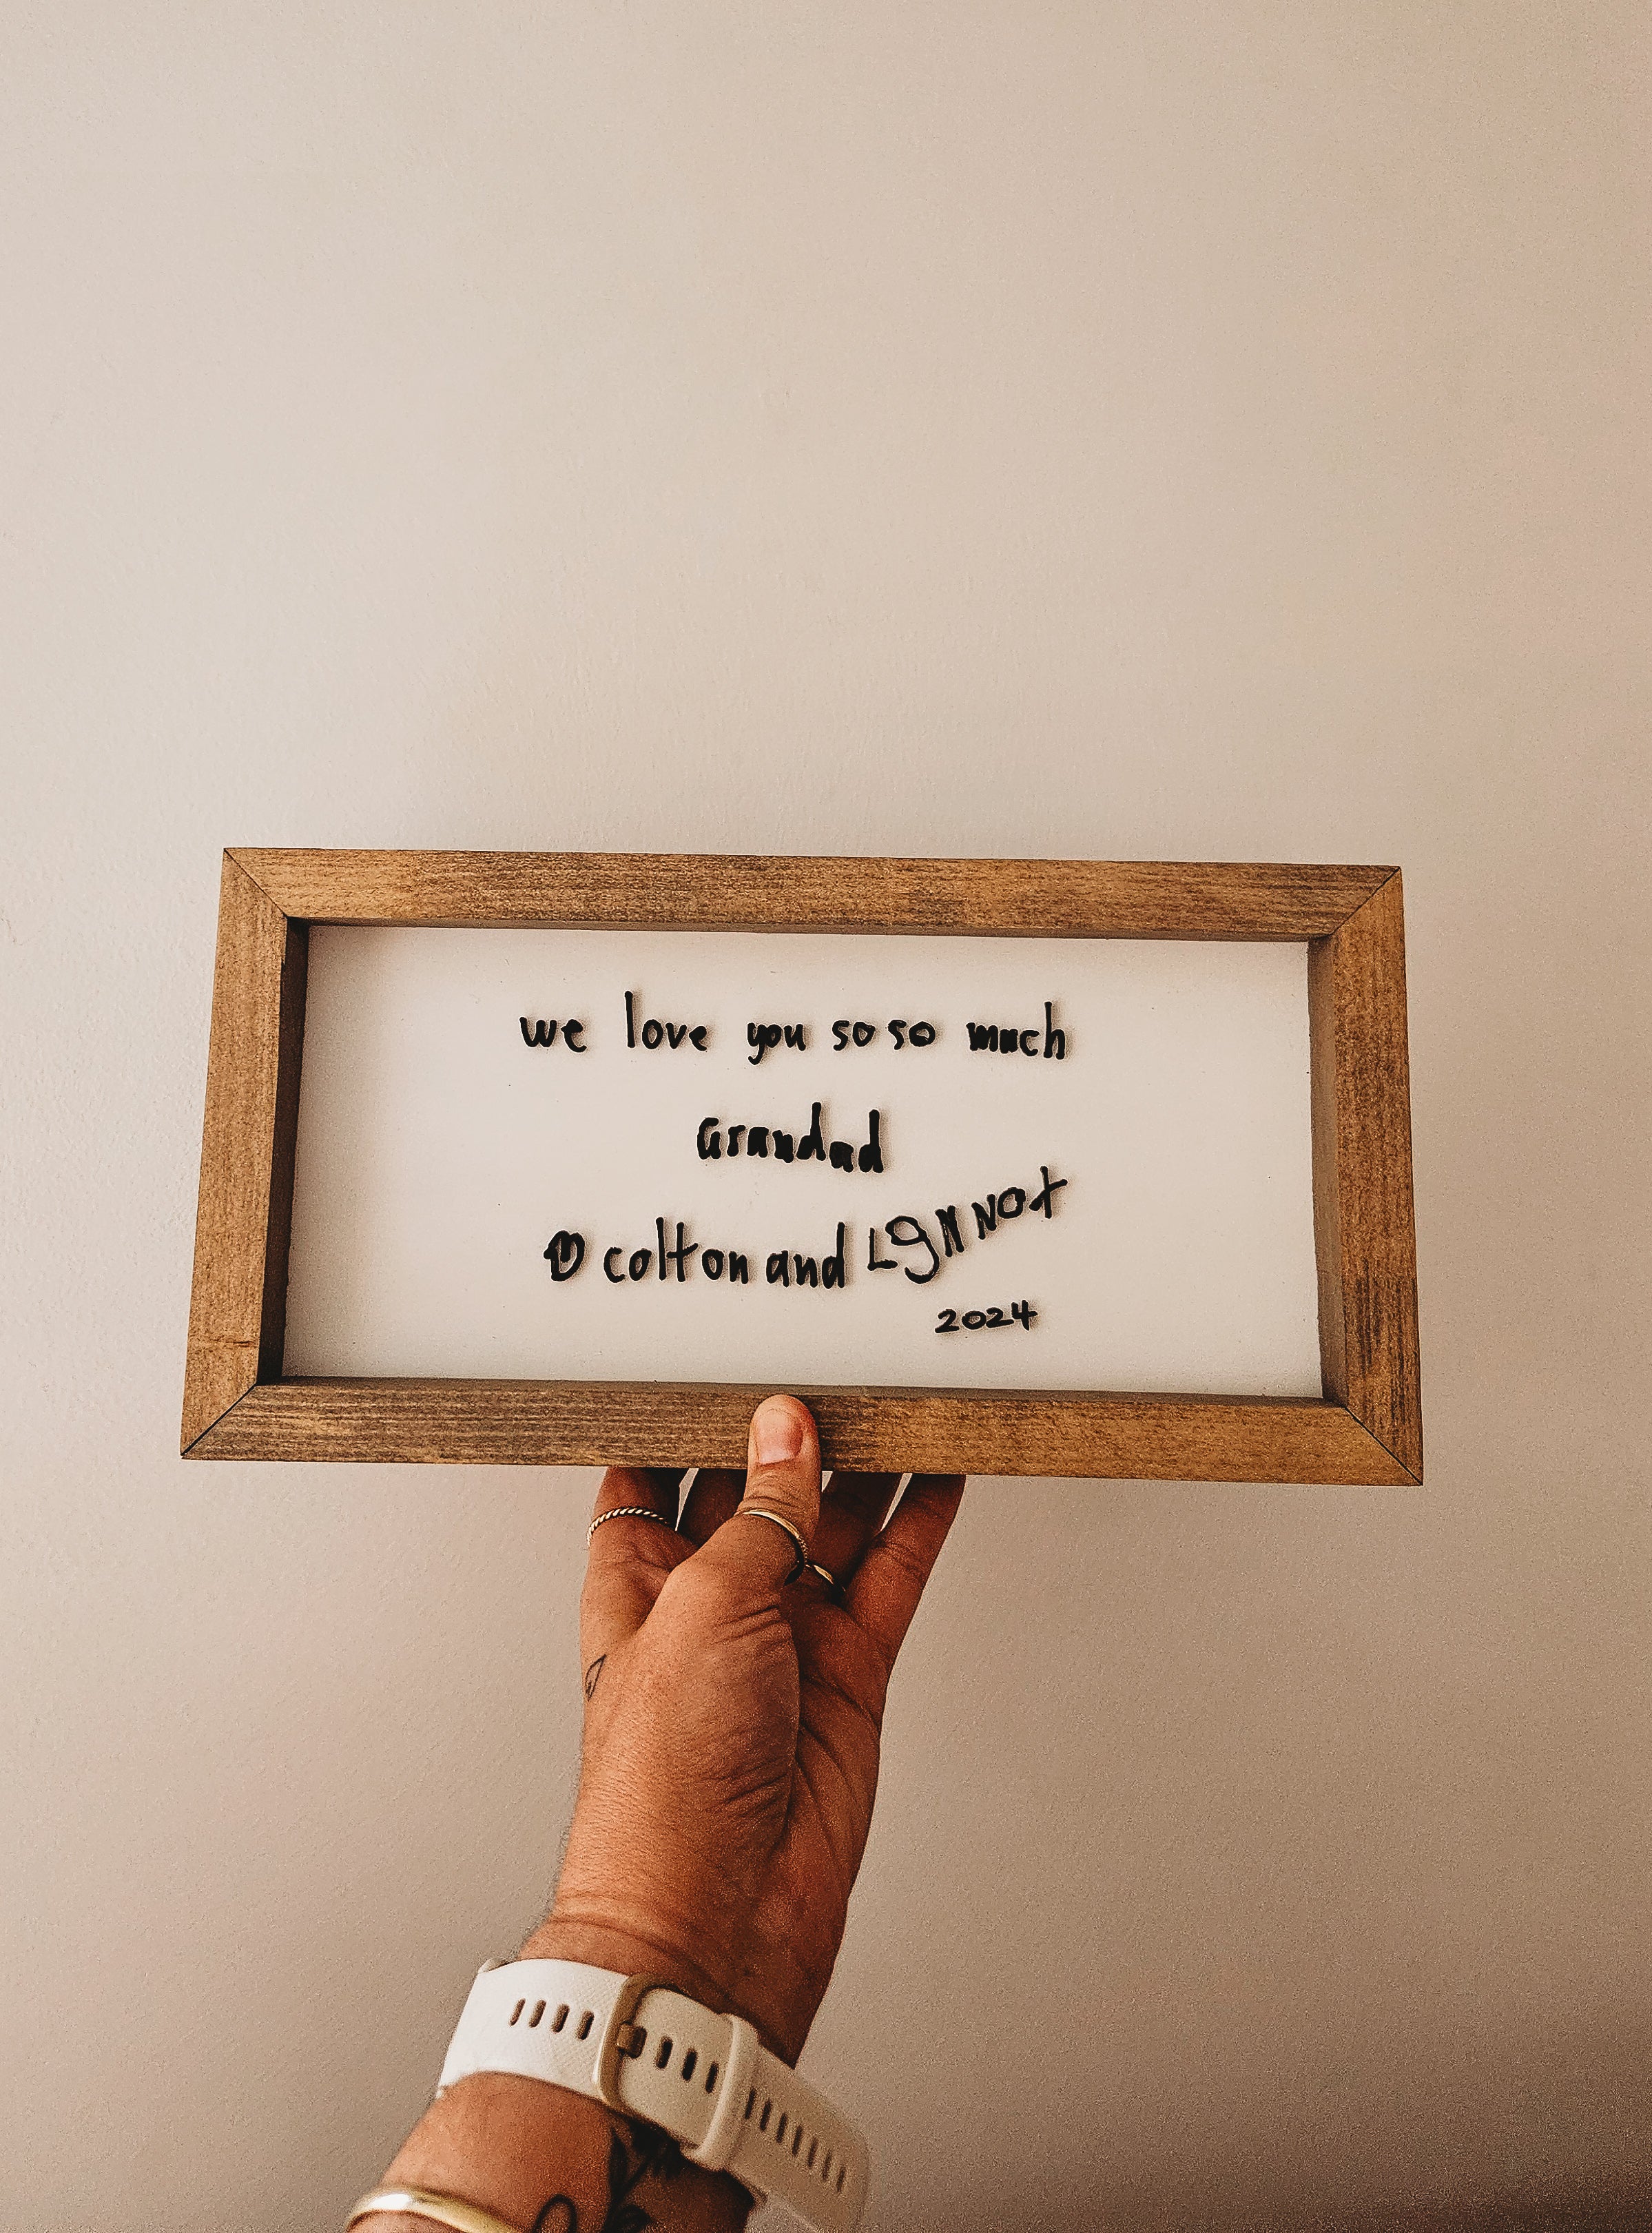 we love you so so much
Grandad
♡ colton and LyNNOX
2024